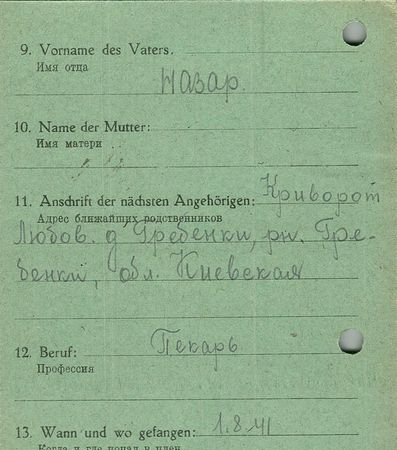 9. Vorname des Vaters.
Имя отца
Назар.
10. Name der Mutter:
Имя матери
11. Anschrift der nächsten Angehörigen: Криворот
Адрес ближайщих родственников
Любов. д Гребенки, рн. Гре-
бенки, обл. Киевская
12. Beruf: Пекарь
Профессия
13. Wann und wo gefangen: 1.8.41
Когда и где попал в плен